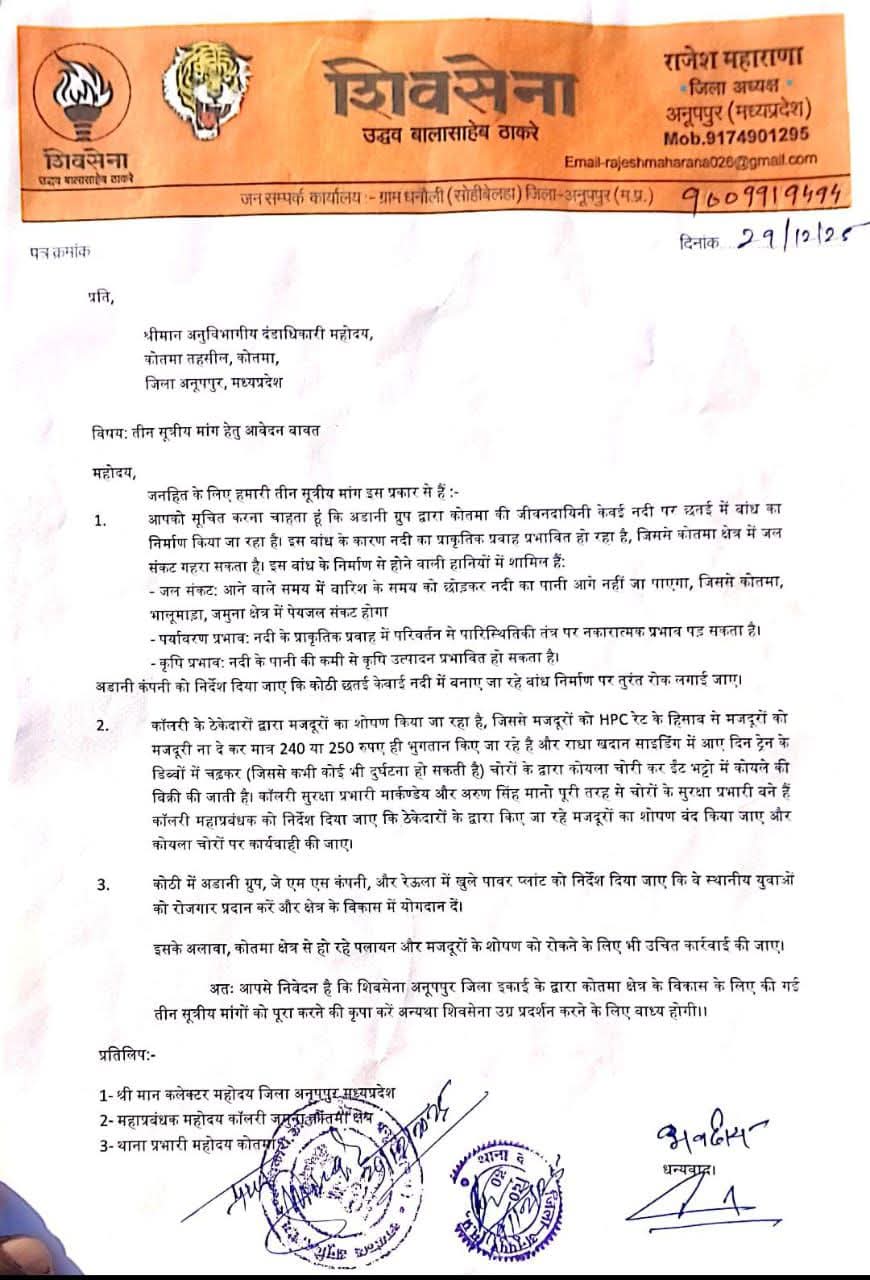 शिवसेना
उद्धव बालासाहेब ठाकरे
शिवसेना
उद्धव बालासाहेब ठाकरे
राजेश महाराणा
जिला अध्यक्ष
अनूपपुर (मध्यप्रदेश)
Mob.9174901295
Email-rajeshmaharana026@gmail.com
जन सम्पर्क कार्यालय :- ग्राम धनौली (सोहीबेलहा) जिला-अनूपपुर (म.प्र.) 9009919494
पत्र क्रमांक
दिनांक 29/12/25
प्रति,
श्रीमान अनुविभागीय दंडाधिकारी महोदय,
कोतमा तहसील, कोतमा,
जिला अनूपपुर, मध्यप्रदेश
विषय: तीन सूत्रीय मांग हेतु आवेदन वावत
महोदय,
जनहित के लिए हमारी तीन सूत्रीय मांग इस प्रकार से हैं :-
1. आपको सूचित करना चाहता हूं कि अडानी ग्रुप द्वारा कोतमा की जीवनदायिनी केवई नदी पर छतई में बांध का
निर्माण किया जा रहा है। इस बांध के कारण नदी का प्राकृतिक प्रवाह प्रभावित हो रहा है, जिससे कोतमा क्षेत्र में जल
संकट गहरा सकता है। इस बांध के निर्माण से होने वाली हानियों में शामिल हैं:
- जल संकट: आने वाले समय में वारिश के समय को छोड़कर नदी का पानी आगे नहीं जा पाएगा, जिससे कोतमा,
भालूमाड़ा, जमुना क्षेत्र में पेयजल संकट होगा
- पर्यावरण प्रभाव: नदी के प्राकृतिक प्रवाह में परिवर्तन से पारिस्थितिकी तंत्र पर नकारात्मक प्रभाव पड़ सकता है।
- कृषि प्रभाव: नदी के पानी की कमी से कृषि उत्पादन प्रभावित हो सकता है।
अडानी कंपनी को निर्देश दिया जाए कि कोठी छतई केवाई नदी में बनाए जा रहे बांध निर्माण पर तुरंत रोक लगाई जाए।
2. कॉलरी के ठेकेदारों द्वारा मजदूरों का शोषण किया जा रहा है, जिससे मजदूरों को HPC रेट के हिसाव से मजदूरों को
मजदूरी ना दे कर मात्र 240 या 250 रुपए ही भुगतान किए जा रहे है और राधा खदान साइडिंग में आए दिन ट्रेन के
डिब्वों में चढ़कर (जिससे कभी कोई भी दुर्घटना हो सकती है) चोरों के द्वारा कोयला चोरी कर ईंट भट्टो में कोयले की
विक्री की जाती है। कॉलरी सुरक्षा प्रभारी मार्कण्डेय और अरुण सिंह मानो पूरी तरह से चोरों के सुरक्षा प्रभारी बने हैं
कॉलरी महाप्रवंधक को निर्देश दिया जाए कि ठेकेदारों के द्वारा किए जा रहे मजदूरों का शोषण वंद किया जाए और
कोयला चोरों पर कार्यवाही की जाए।
3. कोठी में अडानी ग्रुप, जे एम एस कंपनी, और रेऊला में खुले पावर प्लांट को निर्देश दिया जाए कि वे स्थानीय युवाओं
को रोजगार प्रदान करें और क्षेत्र के विकास में योगदान दें।
इसके अलावा, कोतमा क्षेत्र से हो रहे पलायन और मजदूरों के शोषण को रोकने के लिए भी उचित कार्रवाई की जाए।
अतः आपसे निवेदन है कि शिबसेना अनूपपुर जिला इकाई के द्वारा कोतमा क्षेत्र के विकास के लिए की गई
तीन सूत्रीय मांगों को पूरा करने की कृपा करें अन्यथा शिवसेना उग्र प्रदर्शन करने के लिए वाध्य होगी।।
प्रतिलिप:-
1- श्री मान कलेक्टर महोदय जिला अनूपपुर मध्यप्रदेश
2- महाप्रबंधक महोदय कॉलरी जमुना कोतमा क्षेत्र
3- थाना प्रभारी महोदय कोतमा
धन्यवाद।